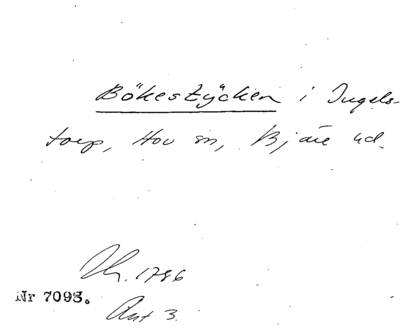 Bökestycken i Ingels-
torp, Hov sn, Bjäre hd.
Lm. 1786
Nr 7093.
Akt 3.